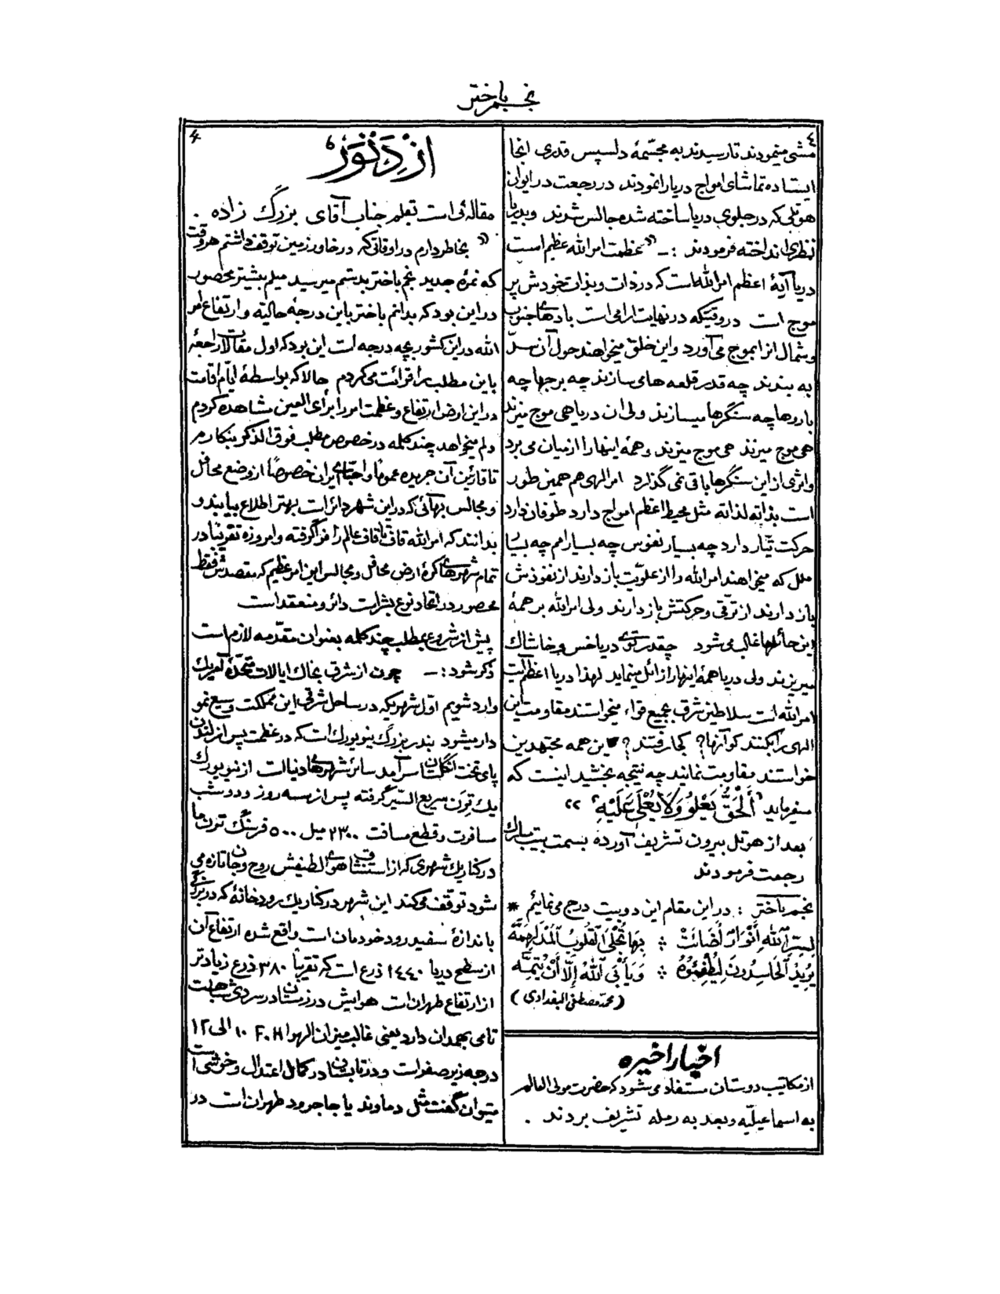 نجم باختر
۴
مشی مینمودند تا رسیدند به مجسّمهٔ دلسپس قدری انجا
ایستاده تماشای امواج دریا را نمودند در رجعت در ایوان
هوتلی که در جلوی دریا ساخته شده جالس شدند و بدریا
نظری انداخته فرمودند :ـ «عظمت امر الله عظیم است
دریا آیهٔ اعظم امر الله است که در ذات و بذات خودش پر
موج است در وقتیکه در نهایت ارامی است بادهای جنوب
و شمال انرا بموج می آورد و این خلق میخواهند حول آن سدّ
به بندند چه قدر قلعه ها می سازند چه برجها چه
باروها چه سنگرها میسازند ولی ان دریا هی موج میزند
هی موج میزند هی موج میزند و همه اینها را از میان می برد
و اثری از این سنگرها باقی نمی گذارد امر الهی هم همین طور
است بذاته لذاته مثل محیط اعظم امواج دارد طوفان دارد
حرکت دارد چه بسیار نفوس چه بسیار امم چه بسیار
ملل که میخواهند امر الله را از علویّت باز دارند از نفوذش
باز دارند از ترقی و حرکتش باز دارند ولی امر الله بر همهٔ
این حائلها غالب می شود چقدر توی دریا خس و خاشاک
میریزند ولی دریا همهٔ اینها را زائل مینماید لهذا دریا اعظم آیت
امر الله است سلاطین شرق بجمیع قواء میخواستند مقاومت این
الهی را بکنند کو آنها؟ کجا رفتند؟ این همه مجتهدین
خواستند مقاومت نمایند چه نتیجه بخشید اینست که
میفرماید "اَلْحَقُّ یَعْلُو وَلَا یُعْلَی عَلَیْهِ" »
بعد از هوتل بیرون تشریف آورده بسمت بیت مبارک
رجعت فرمودند
نجم باختر : در این مقام این دو بیت درج می نمائیم *
لِسِرِّ اَللهِ اَنْوَارٌ اَضَائَتْ :: بِهَا تُجْلَی القُلُوبُ المُدْلَهِمَّهْ
یُرِیدُ الحَاسِدُونَ لِیُطْفِئُوهُ :: وَ یَأْبَی اللهُ اِلّا اَنْ یُتِمَّهْ
(محمّد مصطفی البغدادی)
اخبار اخیره
از مکاتیب دوستان مستفاد می شود که حضرت مولی العالم
به اسماعیلیّه و بعد به رمله تشریف بردند .
۴
از دنور
مقاله ئی است بقلم جناب آقای بزرگ زاده .
«بخاطر دارم در اوقاتی که در خاور زمین توقف داشتم هر وقت
که نمرهٔ جدید نجم باختر بدستم میرسید میلم بیشتر محصور
در این بود که بدانم باختر باین درجه حالیّه و ارتفاع امر
الله در این کشور بچه درجه است این بود که اول مقالات راجعهٔ
باین مطلب را قرائت می کردم حالا که بواسطهٔ ایّام اقامت
در این ارض ارتفاع و عظمت امر را برأی العین مشاهده کردم
دلم میخواهد چند کلمه در خصوص مطلب فوق الذکر بنگارم
تا قارئین آن جریده عموماً و احبّای ایران خصوصاً از وضع محافل
و مجالس بهائی که در این شهر دائر است بهتر اطلاع بیابند و
بدانند که امر الله قاف تا قاف عالم را فرا گرفته و امروزه تقریبا در
تمام شهرهای کرهٔ ارض محافل و مجالس این امر عظیم که مقصدش فقط
محصور در اتحاد نوع بشر است دائر و منعقد است
پیش از شروع بمطلب چند کلمه بعنوان مقدّمه لازم است
ذکر شود :ـ چون از شرق بخاک ایالات متّحدهٔ آمریک
وارد شویم اول شهریکه در ساحل شرقی این مملکت وسیع نمو
دار میشود بندر بزرگ نیویورک است که در عظمت پس از لندن
پای تخت انگلستان سر آمد سائر شهرهای دنیا است از نیویورک
یک ترن سریع السّیر گرفته پس از سه روز و دو شب
مسافرت و قطع مسافت ۲۳۰۰ میل ۵۰۰ فرسنگ ترن ما
در کنار یک شهری که از استنشاق هوای لطیفش روح و جان تازه می
شود توقف می کند این شهر در کنار یک رودخانهٔ که در بزرگی
باندازهٔ سفید رود خودمان است واقع شده ارتفاع آن
از سطح دریا ۱۴۴۰ ذرع است که تقریباً ۳۸۰ ذرع زیادتر
از ارتفاع طهران است هوایش در زمستان در سردی شباهت
تامی بهمدان دارد یعنی غالب میزان الهوا F.H ۱۰ الی ۱۲
درجه زیر صفر است و در تابستان در کمال اعتدال و خوشی است
میتوان گفت مثل دماوند یا جاجرود طهران است در